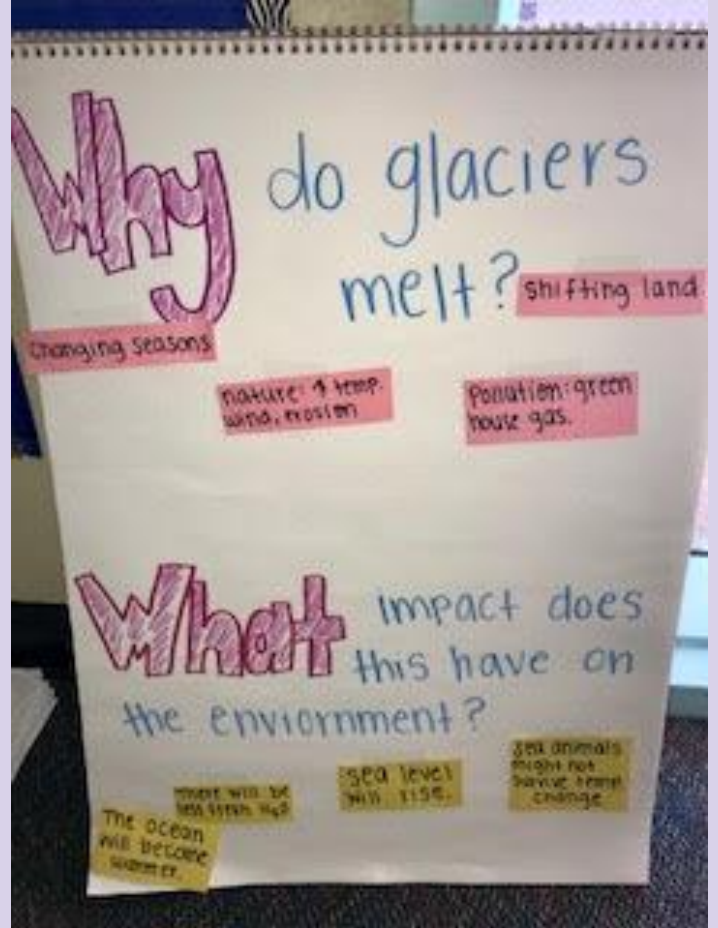 Why do glaciers
melt?
shifting land
changing seasons
nature: ↑ temp.
wind, erosion
Pollution: green
house gas.
What impact does
this have on
the enviornment?
sea animals
might not
survive temp
change
sea level
will rise.
There will be
less fresh H₂O
The ocean
will become
warmer.